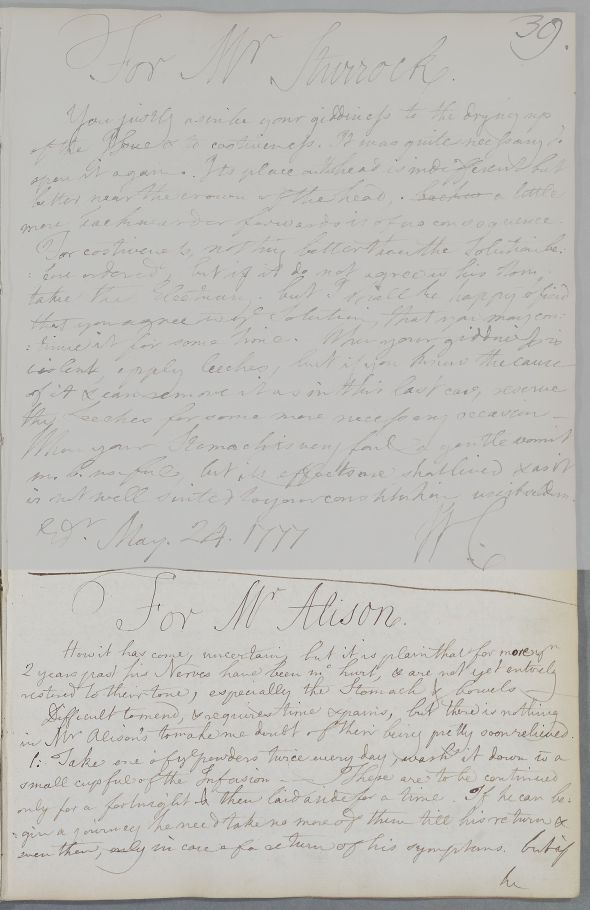 39.
For Mr Sturrock.
You justly ascribe your giddiness to the drying up
of the Issue & to costiveness. It was quite necessary to
open it again. Its place on the head is indifferent but
better near the crown of the head, a little
more backward or forwards is of no consequence.
For costiveness, nothing better than the Solution be:
:fore ordered, but if it do not agree with him
take the Electuary. but I shall be happy to find
that you agree with Solution, that you may con:
:tinue it for some time. When your giddiness is
violent, apply leeches, but if you know the cause
of it & can remove it as in this last case, reserve
the Leeches for some more necessary occasion
When your Stomach is very foul a gentle vomit
m. b. useful, but its effects are shortlived & as it
is not well suited to your constitution use it seldom.
Edr. May. 24. 1777 WC
For Mr Alison.
How it has come, uncertain, but it is plain that for more yn
2 years past his Nerves have been mh hurt, & are not yet entirely
restored to their tone, especially the Stomach & bowels
Difficult to mend, & requires time & pains, but there is nothing
in Mr Alison's to make me doubt of their being pretty soon relieved.
1: Take one of ye powders twice every day, wash it down wt a
small cupful of the Infusion These are to be continued
only for a fortnight & then laid aside for a time. If he can be:
:gin a journey he need take no more of them till his return &
even then, only in case of a return of his symptoms. but if
he